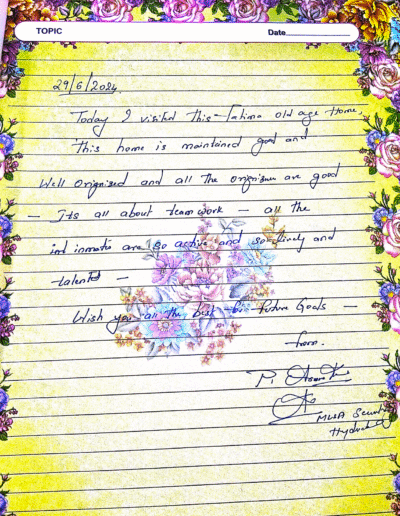 TOPIC
Date
29/6/2024
Today I visited this Fatima old age Home,
This home is maintained good and
Well orignised and all the orignisers are good
- Its all about team work - all the
inmates are so active and so lively and
talented -
Wish you all the best for future Goals -
from.
P.
MLA Security
Hyderabad